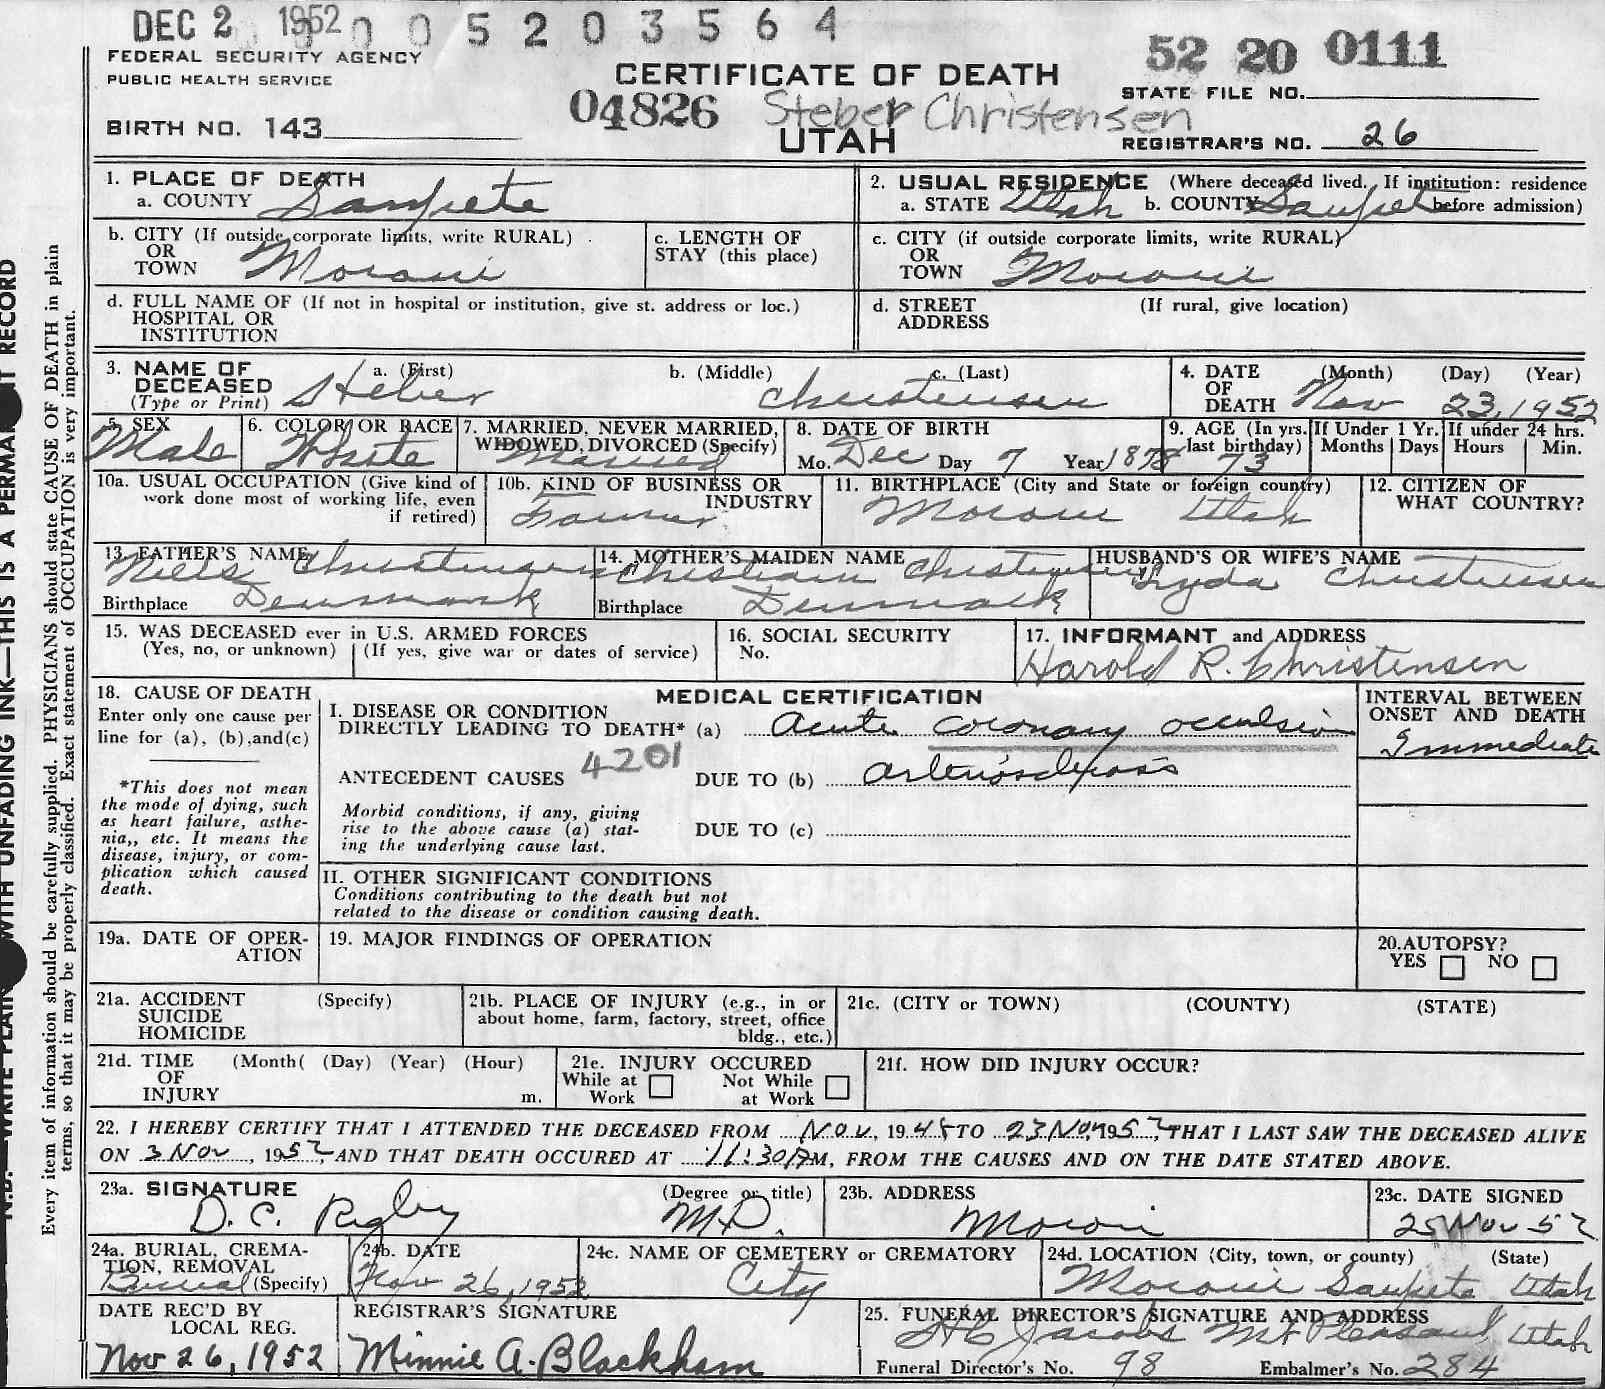 DEC 2 1952 0 0 5 2 0 3 5 6 4
FEDERAL SECURITY AGENCY
PUBLIC HEALTH SERVICE
CERTIFICATE OF DEATH
52 20 0111
STATE FILE NO.
04826 Steber Christensen
BIRTH NO. 143
UTAH
REGISTRAR'S NO. 26
1. PLACE OF DEATH
a. COUNTY Sanpete
2. USUAL RESIDENCE (Where deceased lived. If institution: residence before admission)
a. STATE Utah b. COUNTY Sanpete
b. CITY (If outside corporate limits, write RURAL)
OR
TOWN Moroni
c. LENGTH OF
STAY (this place)
c. CITY (if outside corporate limits, write RURAL)
OR
TOWN Moroni
d. FULL NAME OF (If not in hospital or institution, give st. address or loc.)
HOSPITAL OR
INSTITUTION
d. STREET (If rural, give location)
ADDRESS
3. NAME OF a. (First) b. (Middle) c. (Last)
DECEASED
(Type or Print) Heber Christensen
4. DATE (Month) (Day) (Year)
OF
DEATH Nov 23, 1952
5. SEX
Male
6. COLOR OR RACE
White
7. MARRIED, NEVER MARRIED,
WIDOWED, DIVORCED (Specify)
Married
8. DATE OF BIRTH
Mo. Dec Day 7 Year 1878
9. AGE (In yrs. last birthday) 73
If Under 1 Yr. Months Days
If under 24 hrs. Hours Min.
10a. USUAL OCCUPATION (Give kind of
work done most of working life, even
if retired)
10b. KIND OF BUSINESS OR
INDUSTRY
Farmer
11. BIRTHPLACE (City and State or foreign country)
Moroni Utah
12. CITIZEN OF
WHAT COUNTRY?
13. FATHER'S NAME
Niels Christensen
Birthplace Denmark
14. MOTHER'S MAIDEN NAME
Christensen
Birthplace Denmark
HUSBAND'S OR WIFE'S NAME
Lyda Christensen
15. WAS DECEASED ever in U.S. ARMED FORCES
(Yes, no, or unknown) (If yes, give war or dates of service)
16. SOCIAL SECURITY
No.
17. INFORMANT and ADDRESS
Harold R. Christensen
18. CAUSE OF DEATH
Enter only one cause per
line for (a), (b), and (c)
*This does not mean
the mode of dying, such
as heart failure, asthe-
nia,, etc. It means the
disease, injury, or com-
plication which caused
death.
MEDICAL CERTIFICATION
I. DISEASE OR CONDITION
DIRECTLY LEADING TO DEATH* (a) Acute coronary occulsion
4201
ANTECEDENT CAUSES DUE TO (b) arteriosclerosis
Morbid conditions, if any, giving
rise to the above cause (a) stat-
ing the underlying cause last.
DUE TO (c)
II. OTHER SIGNIFICANT CONDITIONS
Conditions contributing to the death but not
related to the disease or condition causing death.
INTERVAL BETWEEN
ONSET AND DEATH
Immediate
19a. DATE OF OPER-
ATION
19. MAJOR FINDINGS OF OPERATION
20.AUTOPSY?
YES NO
21a. ACCIDENT (Specify)
SUICIDE
HOMICIDE
21b. PLACE OF INJURY (e.g., in or
about home, farm, factory, street, office
bldg., etc.)
21c. (CITY or TOWN) (COUNTY) (STATE)
21d. TIME (Month( (Day) (Year) (Hour)
OF
INJURY m.
21e. INJURY OCCURED
While at Work Not While at Work
21f. HOW DID INJURY OCCUR?
22. I HEREBY CERTIFY THAT I ATTENDED THE DECEASED FROM Nov, 1948 TO 23 Nov, 1952, THAT I LAST SAW THE DECEASED ALIVE
ON 3 Nov, 1952, AND THAT DEATH OCCURED AT 11:30 PM, FROM THE CAUSES AND ON THE DATE STATED ABOVE.
23a. SIGNATURE (Degree or title)
D. C. Rigby M.D.
23b. ADDRESS
Moroni
23c. DATE SIGNED
25 Nov 52
24a. BURIAL, CREMA-
TION, REMOVAL
Burial (Specify)
24b. DATE
Nov 26, 1952
24c. NAME OF CEMETERY or CREMATORY
City
24d. LOCATION (City, town, or county) (State)
Moroni Sanpete Utah
DATE REC'D BY
LOCAL REG.
Nov 26, 1952
REGISTRAR'S SIGNATURE
Minnie A. Blackham
25. FUNERAL DIRECTOR'S SIGNATURE AND ADDRESS
Jacobs Mt Pleasant Utah
Funeral Director's No. 98 Embalmer's No. 284
Every item of information should be carefully supplied. PHYSICIANS should state CAUSE OF DEATH in plain
terms, so that it may be properly classified. Exact statement of OCCUPATION is very important.
WITH UNFADING INK—THIS IS A PERMA T RECORD